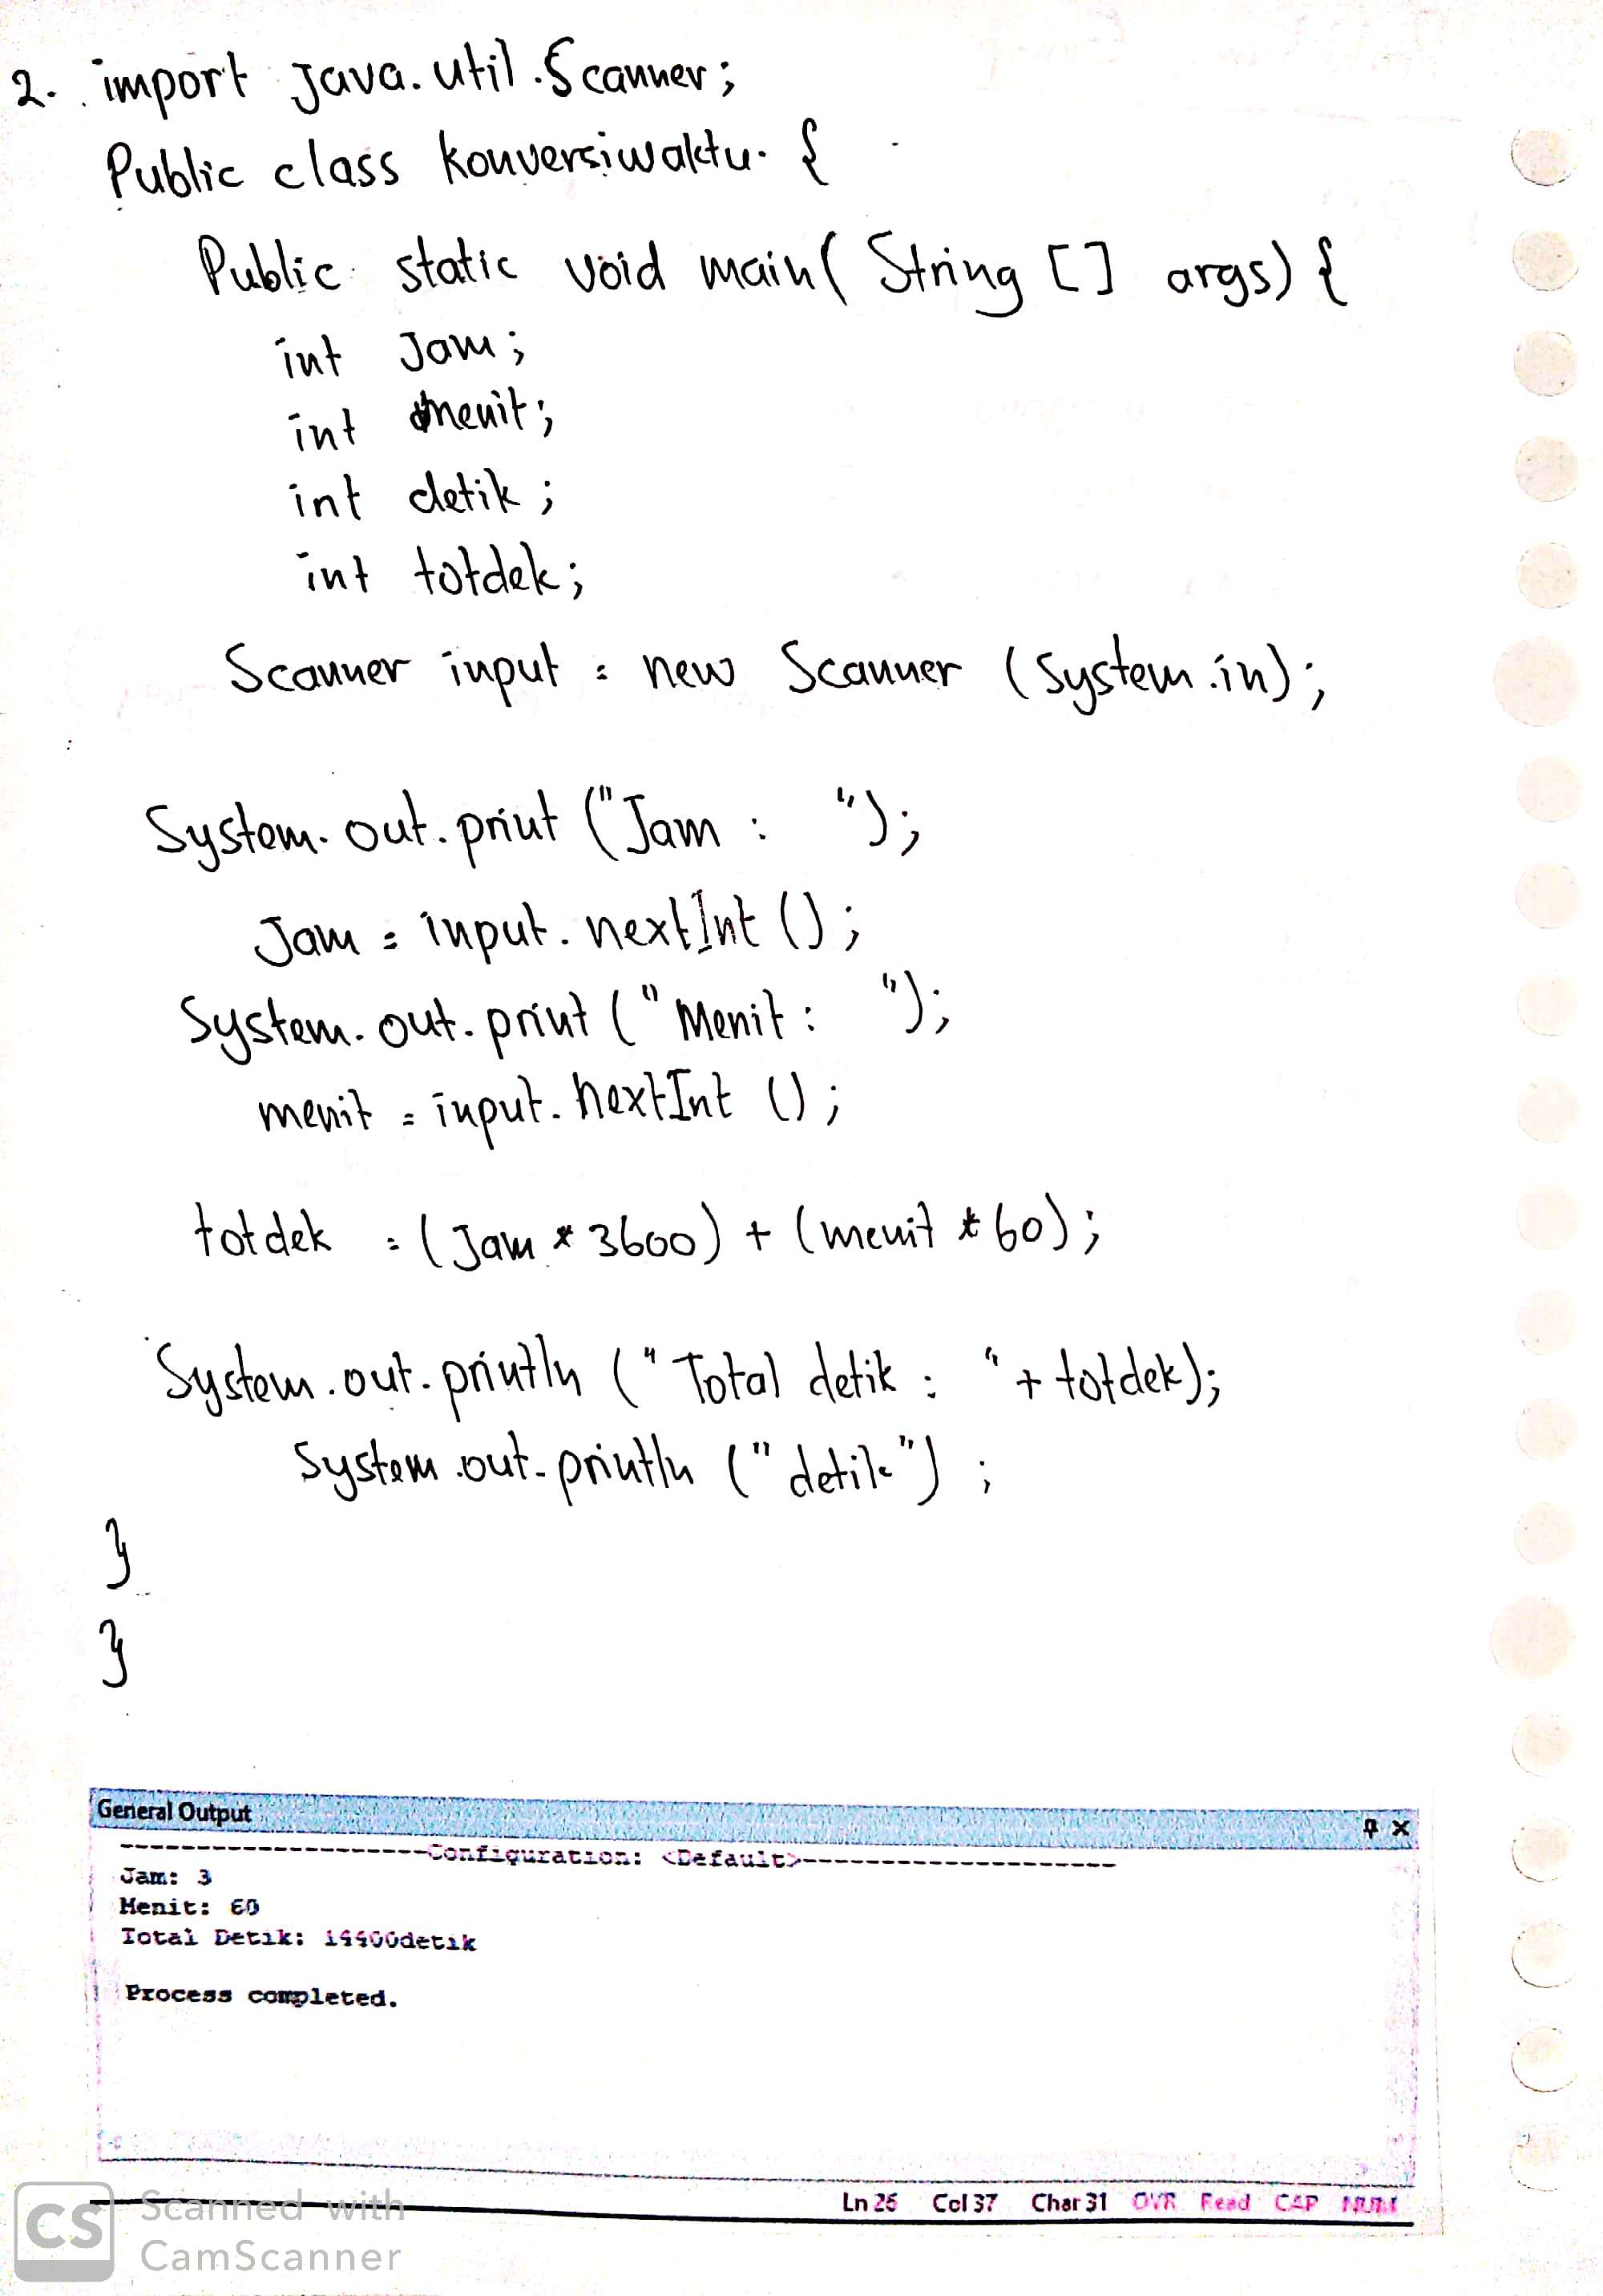 2. import java.util.Scanner;
Public class konversiwaktu {
Public static void main( String [] args) {
int Jam;
int menit;
int detik;
int totdek;
Scanner input = new Scanner (System.in);
System.out.print ("Jam : ");
Jam = input.nextInt ();
System.out.print ("Menit : ");
menit = input.nextInt ();
totdek = (Jam * 3600) + (menit * 60);
System.out.println ("Total detik : " + totdek);
System.out.println ("detik") ;
}
}
General Output
--------------------Configuration: <Default>--------------------
Jam: 3
Menit: 60
Total Detik: 14400detik
Process completed.
Ln 26 Col 37 Char 31 OVR Read CAP NUM
CS Scanned with
CamScanner